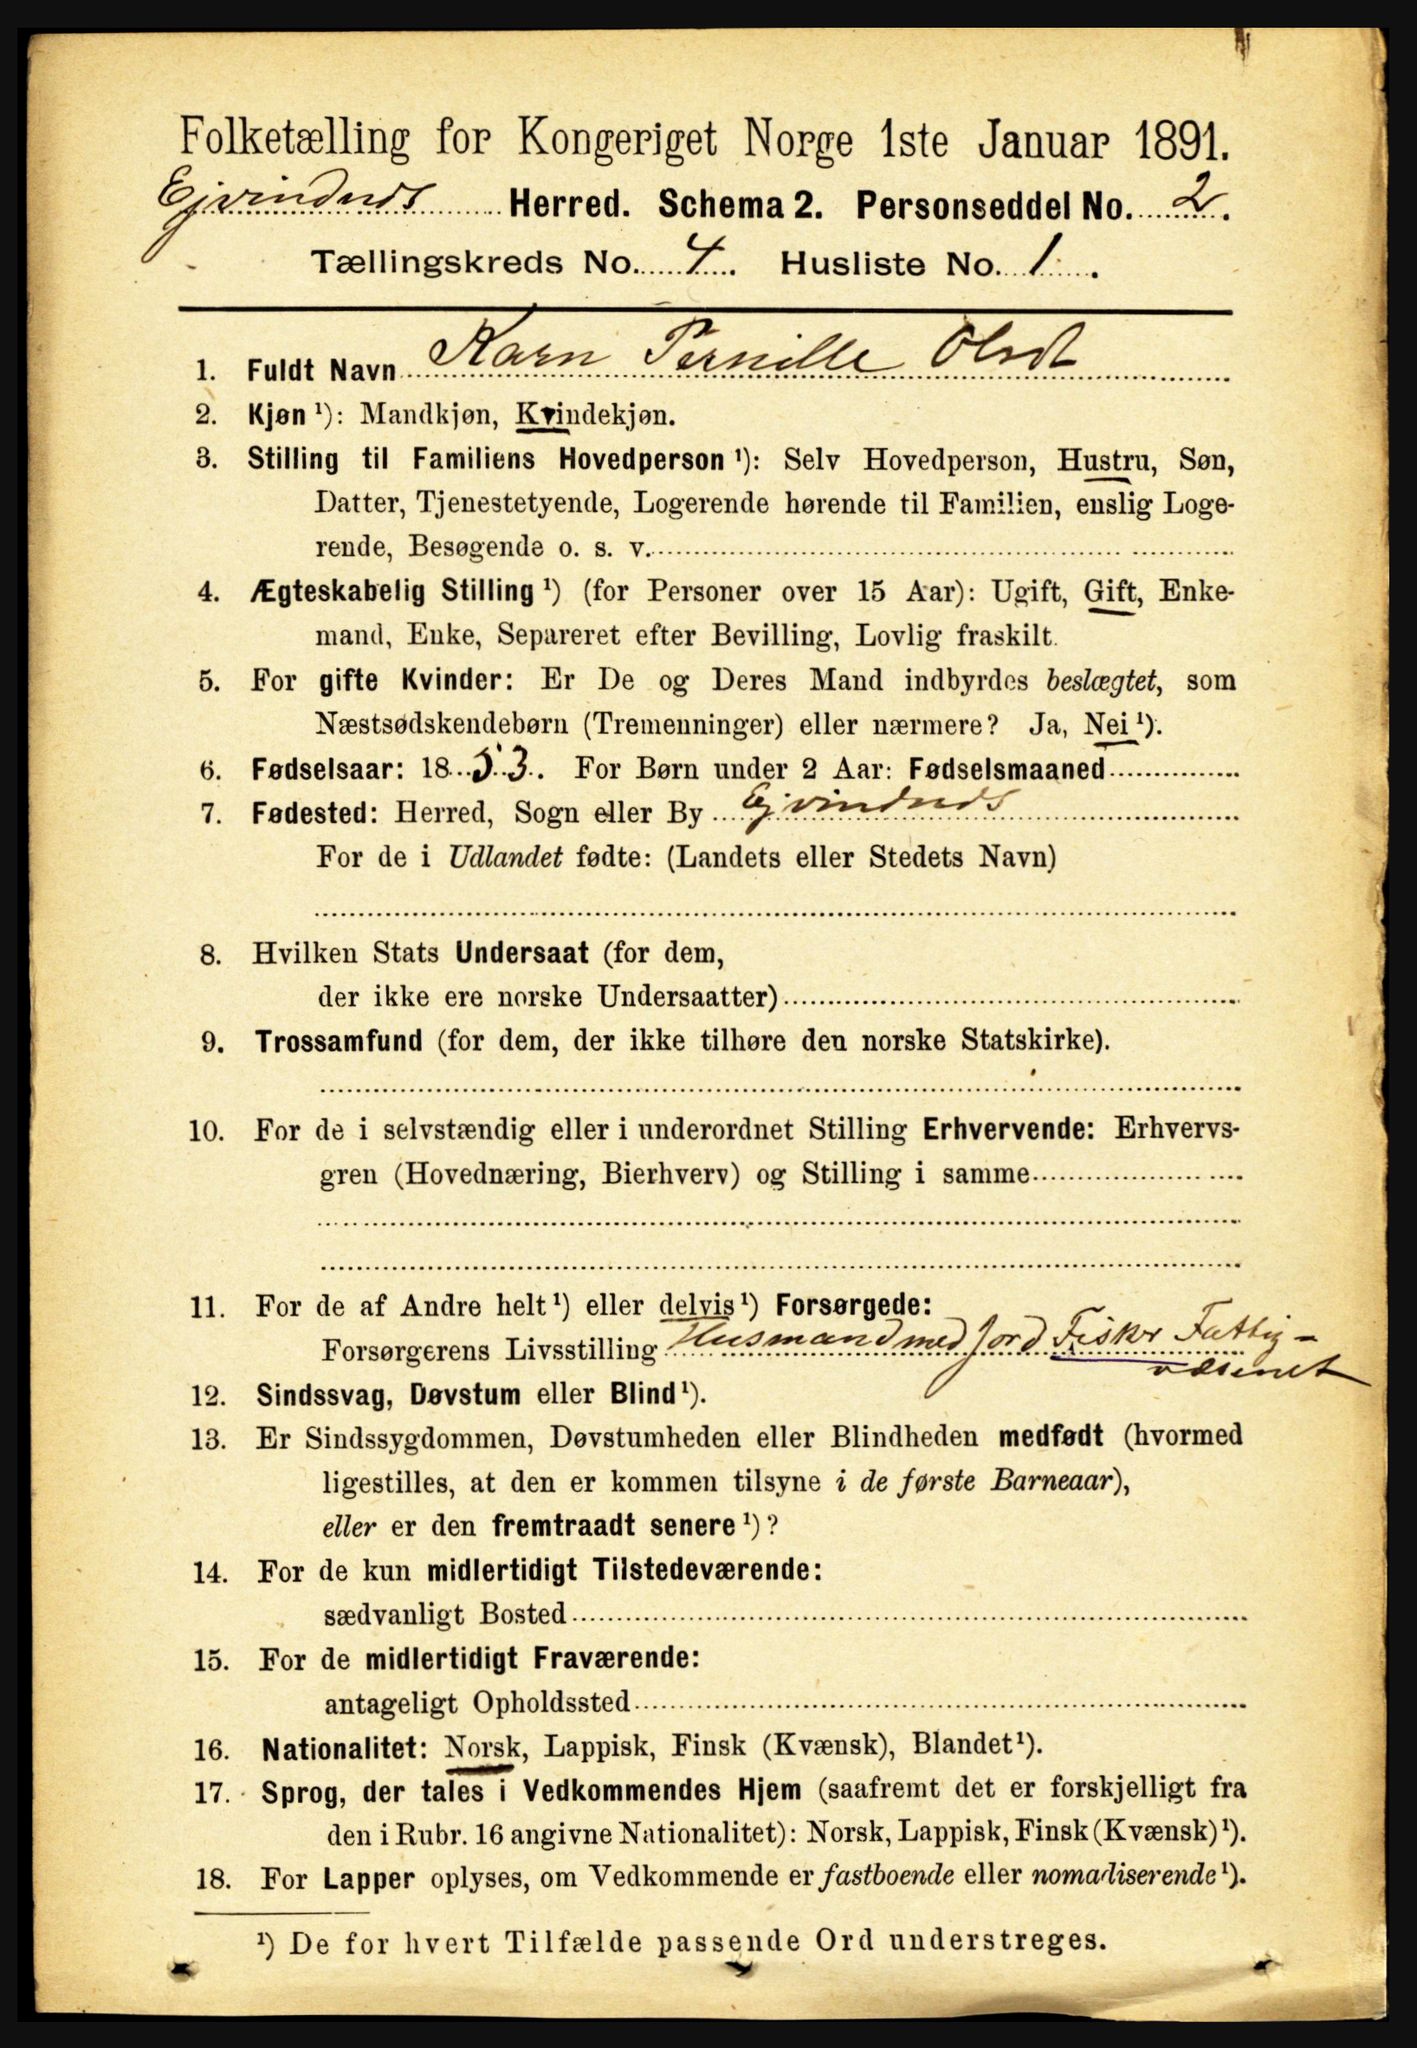 Folketælling for Kongeriget Norge 1ste Januar 1891.
Ejvindnds Herred. Schema 2. Personseddel No. 2.
Tællingskreds No. 4. Husliste No. 1.
1. Fuldt Navn Karn Pernille Olsdt
2. Kjøn ¹): Mandkjøn, Kvindekjøn.
3. Stilling til Familiens Hovedperson ¹): Selv Hovedperson, Hustru, Søn,
Datter, Tjenestetyende, Logerende hørende til Familien, enslig Loge-
rende, Besøgende o. s. v.
4. Ægteskabelig Stilling ¹) (for Personer over 15 Aar): Ugift, Gift, Enke-
mand, Enke, Separeret efter Bevilling, Lovlig fraskilt.
5. For gifte Kvinder: Er De og Deres Mand indbyrdes beslægtet, som
Næstsødskendebørn (Tremenninger) eller nærmere? Ja, Nei ¹).
6. Fødselsaar: 1853. For Børn under 2 Aar: Fødselsmaaned
7. Fødested: Herred, Sogn eller By Ejvindnds
For de i Udlandet fødte: (Landets eller Stedets Navn)
8. Hvilken Stats Undersaat (for dem,
der ikke ere norske Undersaatter)
9. Trossamfund (for dem, der ikke tilhøre den norske Statskirke).
10. For de i selvstændig eller i underordnet Stilling Erhvervende: Erhvervs-
gren (Hovednæring, Bierhverv) og Stilling i samme
11. For de af Andre helt ¹) eller delvis ¹) Forsørgede:
Forsørgerens Livsstilling Husmand med Jord Fisker Fattig-
væsenet
12. Sindssvag, Døvstum eller Blind ¹).
13. Er Sindssygdommen, Døvstumheden eller Blindheden medfødt (hvormed
ligestilles, at den er kommen tilsyne i de første Barneaar),
eller er den fremtraadt senere ¹)?
14. For de kun midlertidigt Tilstedeværende:
sædvanligt Bosted
15. For de midlertidigt Fraværende:
antageligt Opholdssted
16. Nationalitet: Norsk, Lappisk, Finsk (Kvænsk), Blandet ¹).
17. Sprog, der tales i Vedkommendes Hjem (saafremt det er forskjelligt fra
den i Rubr. 16 angivne Nationalitet): Norsk, Lappisk, Finsk (Kvænsk) ¹).
18. For Lapper oplyses, om Vedkommende er fastboende eller nomadiserende ¹).
¹) De for hvert Tilfælde passende Ord understreges.